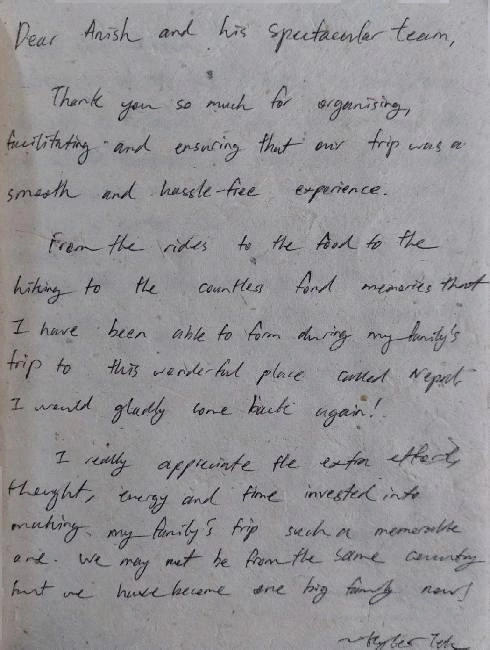 Dear Anish and his spectacular team,
Thank you so much for organising,
facilitating and ensuring that our trip was a
smooth and hassle-free experience.
From the rides to the food to the
hiking to the countless fond memories that
I have been able to form during my family's
trip to this wonderful place called Nepal.
I would gladly come back again!
I really appreciate the extra efforts,
thought, energy and time invested into
making my family's trip such a memorable
one. We may not be from the same country
but we have become one big family now!